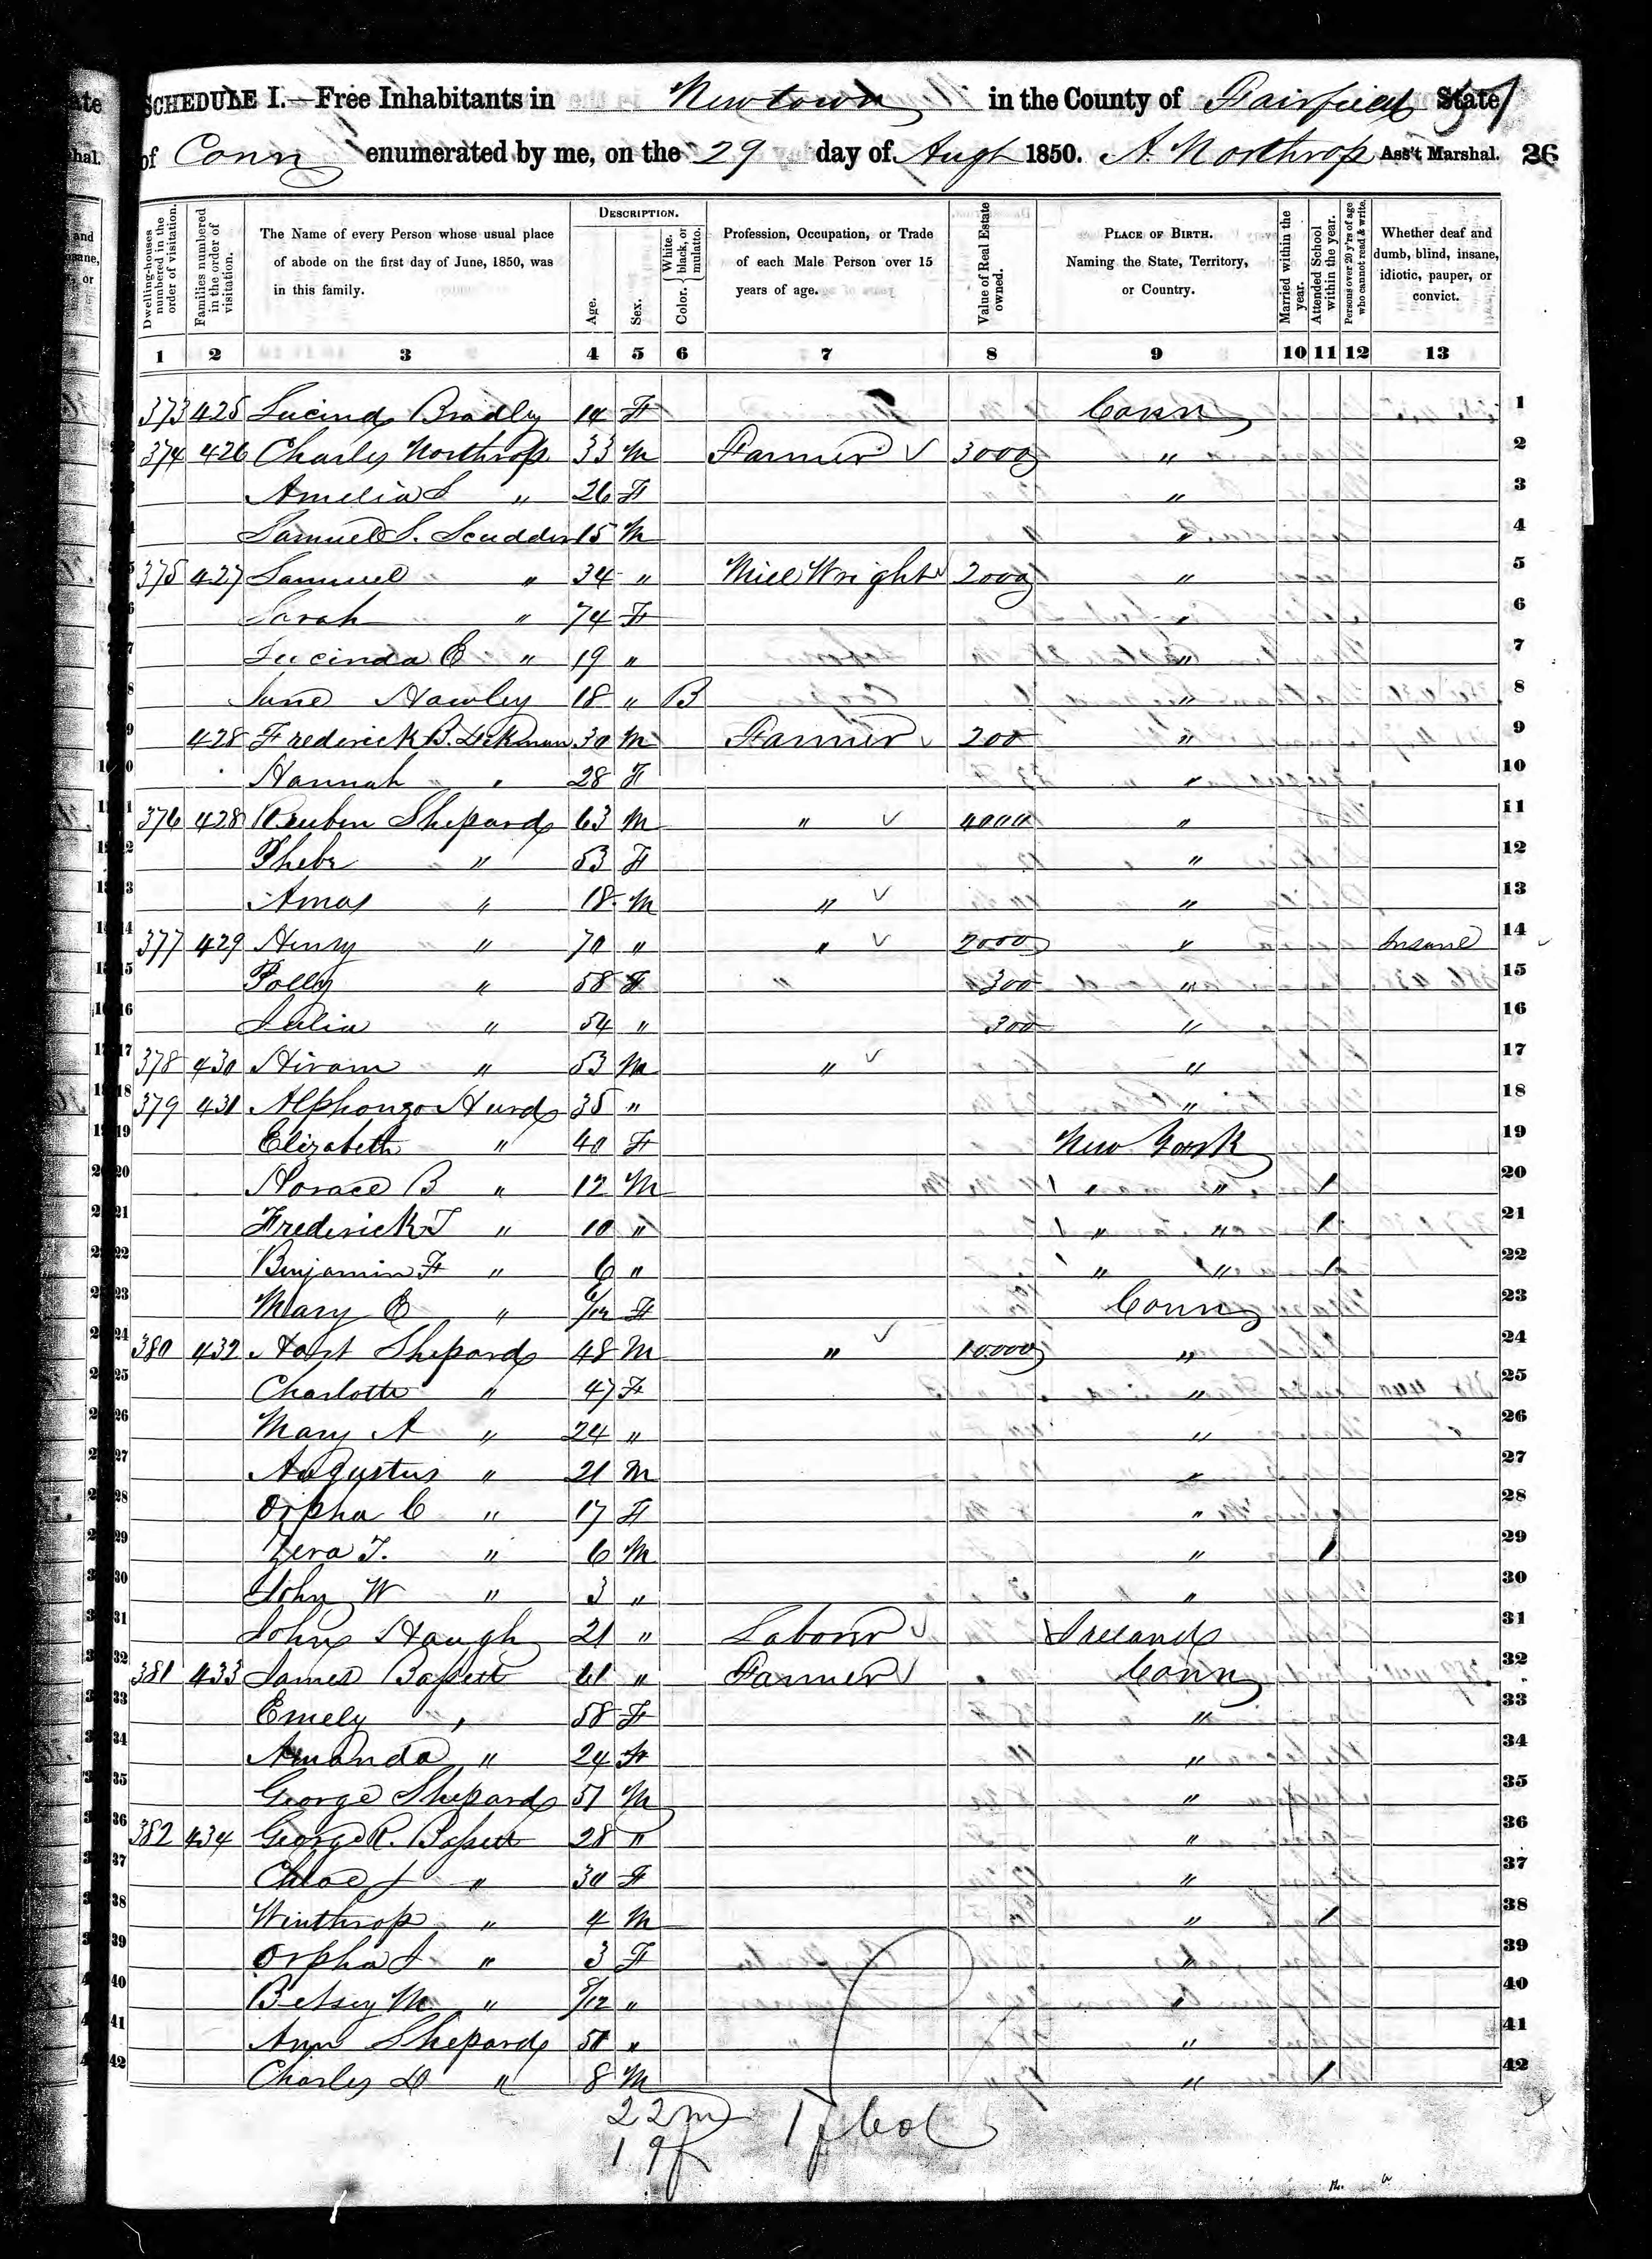 SCHEDULE I.—Free Inhabitants in Newtown in the County of Fairfield State
of Conn enumerated by me, on the 29 day of Augt 1850. A. Northrop Ass't Marshal. 26
Dwelling-houses numbered in the order of visitation.
Families numbered in the order of visitation.
The Name of every Person whose usual place of abode on the first day of June, 1850, was in this family.
DESCRIPTION.
Age.
Sex.
Color. White, black, or mulatto.
Profession, Occupation, or Trade of each Male Person over 15 years of age.
Value of Real Estate owned.
PLACE OF BIRTH. Naming the State, Territory, or Country.
Married within the year.
Attended School within the year.
Persons over 20 y'rs of age who cannot read & write.
Whether deaf and dumb, blind, insane, idiotic, pauper, or convict.
1 2 3 4 5 6 7 8 9 10 11 12 13
373 425 Lucind Bradly 14 F Conn 1
374 426 Charles Northrop 33 M Farmer ✓ 3000 " 2
Amelia S " 26 F " 3
Samuel S. Scudder 15 M " 4
375 427 Samuel " 34 " Mill Wright 2000 " 5
Sarah " 74 F " 6
Lucinda E " 19 " " 7
Jane Hawley 18 " B " 8
428 Frederick B. 30 M Farmer 200 " 9
Hannah " 28 F " 10
376 428 Reuben Shepard 63 M " ✓ 4000 " 11
Phebe " 53 F " 12
Amos " 18 M " ✓ " 13
377 429 Henry " 70 " " ✓ 2000 " Insane 14
Polly " 58 F " 300 " 15
Julia " 54 " 300 " 16
378 430 Hiram " 53 M " ✓ " 17
379 431 Alphonzo Hurd 35 " " 18
Elizabeth " 40 F New York 19
Horace B " 12 M " " 1 20
Frederick T " 10 " " " 1 21
Benjamin F " 6 " " " 1 22
Mary E " 6/12 F Conn 23
380 432 Hart Shepard 48 M " ✓ 10000 " 24
Charlotte " 47 F " 25
Mary A " 24 " " 26
Augustus " 21 M " 27
Orpha C " 17 F " 28
Zera T. " 6 M " 1 29
John W " 3 " " 30
John Haugh 21 " Laborer ✓ Ireland 31
381 433 James Bassett 61 " Farmer ✓ Conn 32
Emely " 58 F " 33
Amanda " 24 F " 34
George Shepard 51 M " 35
382 434 George R. Bassett 28 " " 36
Chloe J " 30 F " 37
Winthrop " 4 M " 1 38
Orpha J " 3 F " 39
Betsey M " 8/12 " " 40
Ann Shepard 51 " " 41
Charles D " 8 M " 1 42
22m
19f 1 f Col